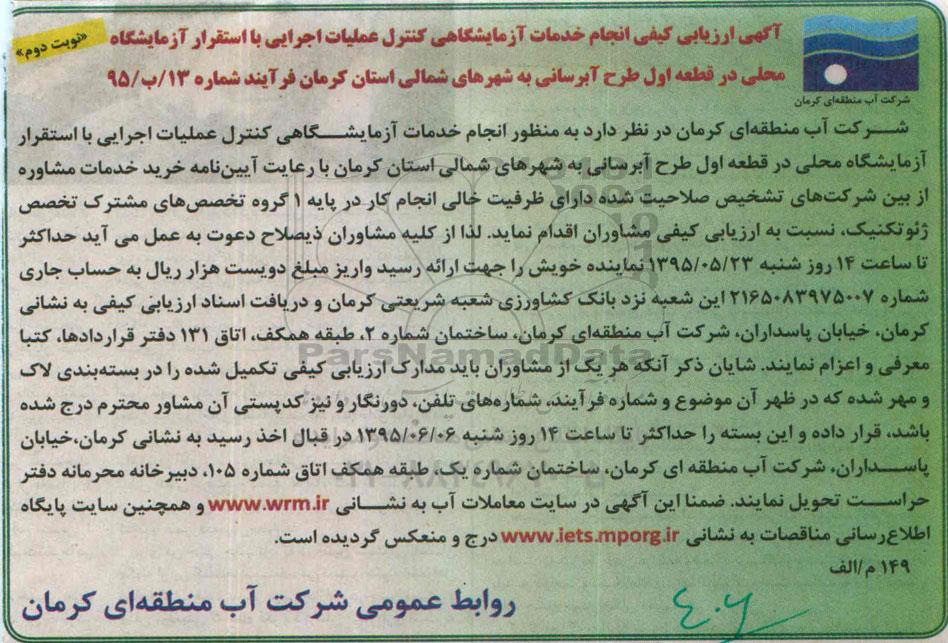 «نوبت دوم»
آگهی ارزیابی کیفی انجام خدمات آزمایشگاهی کنترل عملیات اجرایی با استقرار آزمایشگاه
محلی در قطعه اول طرح آبرسانی به شهرهای شمالی استان کرمان فرآیند شماره ۱۳/ب/۹۵
شرکت آب منطقه‌ای کرمان
شرکت آب منطقه‌ای کرمان در نظر دارد به منظور انجام خدمات آزمایشگاهی کنترل عملیات اجرایی با استقرار
آزمایشگاه محلی در قطعه اول طرح آبرسانی به شهرهای شمالی استان کرمان با رعایت آیین‌نامه خرید خدمات مشاوره
از بین شرکت‌های تشخیص صلاحیت شده دارای ظرفیت خالی انجام کار در پایه ۱ گروه تخصص‌های مشترک تخصص
ژئوتکنیک، نسبت به ارزیابی کیفی مشاوران اقدام نماید. لذا از کلیه مشاوران ذیصلاح دعوت به عمل می آید حداکثر
تا ساعت ۱۴ روز شنبه ۱۳۹۵/۰۵/۲۳ نماینده خویش را جهت ارائه رسید واریز مبلغ دویست هزار ریال به حساب جاری
شماره ۲۱۶۵۰۸۳۹۷۵۰۰۷ این شعبه نزد بانک کشاورزی شعبه شریعتی کرمان و دریافت اسناد ارزیابی کیفی به نشانی
کرمان، خیابان پاسداران، شرکت آب منطقه‌ای کرمان، ساختمان شماره ۲، طبقه همکف، اتاق ۱۳۱ دفتر قراردادها، کتبا
معرفی و اعزام نمایند. شایان ذکر آنکه هر یک از مشاوران باید مدارک ارزیابی کیفی تکمیل شده را در بسته‌بندی لاک
و مهر شده که در ظهر آن موضوع و شماره فرآیند، شماره‌های تلفن، دورنگار و نیز کدپستی آن مشاور محترم درج شده
باشد، قرار داده و این بسته را حداکثر تا ساعت ۱۴ روز شنبه ۱۳۹۵/۰۶/۰۶ در قبال اخذ رسید به نشانی کرمان،خیابان
پاسداران، شرکت آب منطقه ای کرمان، ساختمان شماره یک، طبقه همکف اتاق شماره ۱۰۵، دبیرخانه محرمانه دفتر
حراست تحویل نمایند. ضمنا این آگهی در سایت معاملات آب به نشانی www.wrm.ir و همچنین سایت پایگاه
اطلاع‌رسانی مناقصات به نشانی www.iets.mporg.ir درج و منعکس گردیده است.
۱۴۹ م/الف
روابط عمومی شرکت آب منطقه‌ای کرمان
ParsNamadData